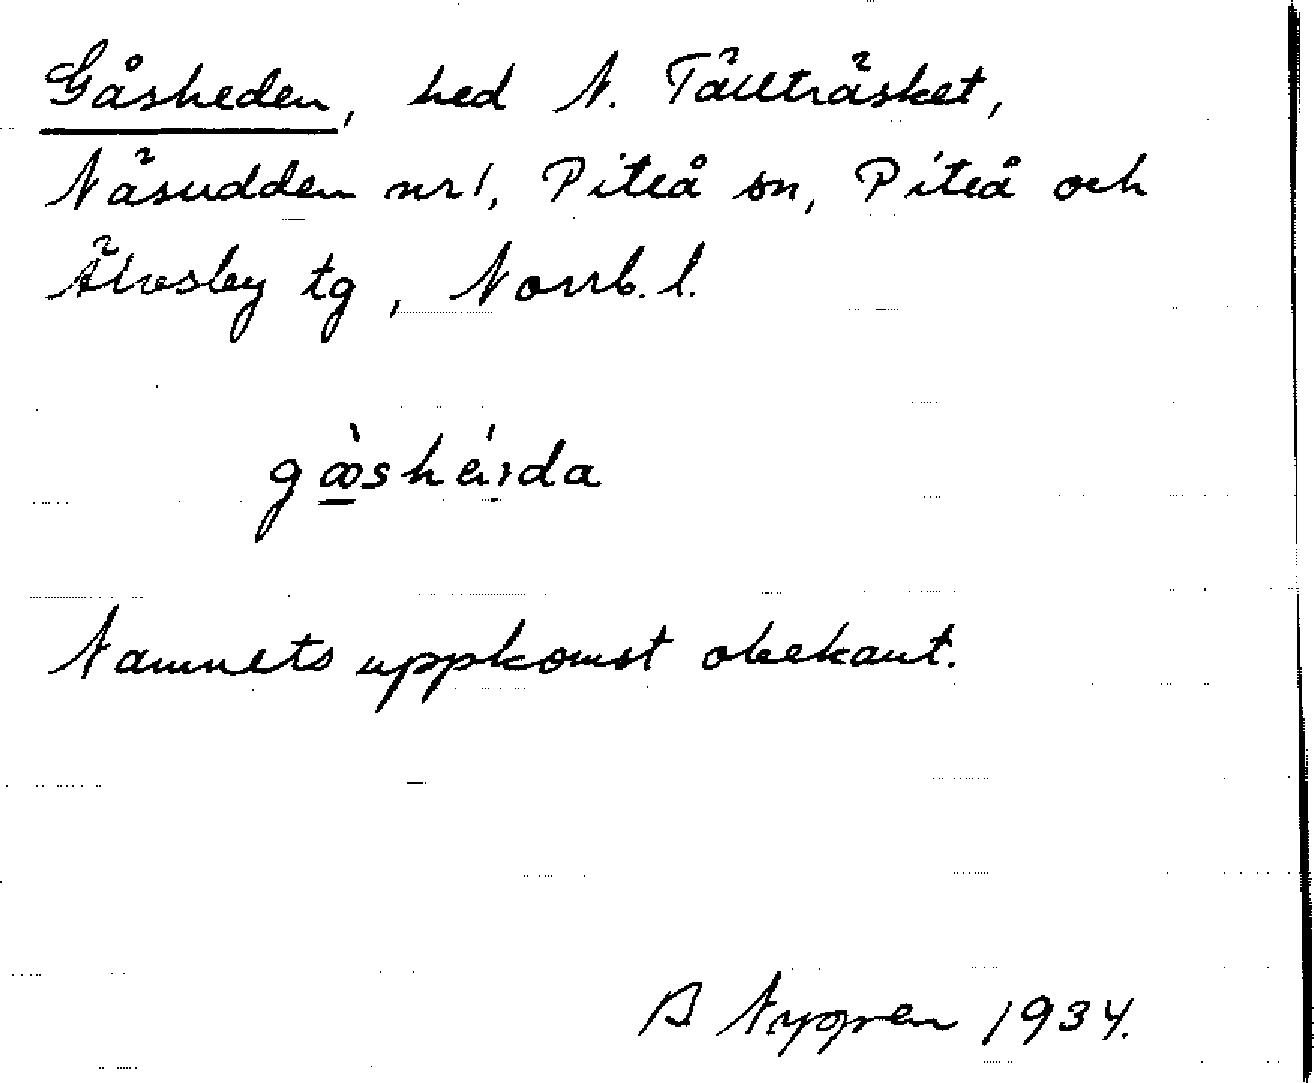 Gåsheden, hed N. Tällträsket,
Näsudden nr 1, Piteå sn, Piteå och
Älvsby tg, Norrb. l.
gòshéida
Namnets uppkomst obekant.
A Nygren 1934.